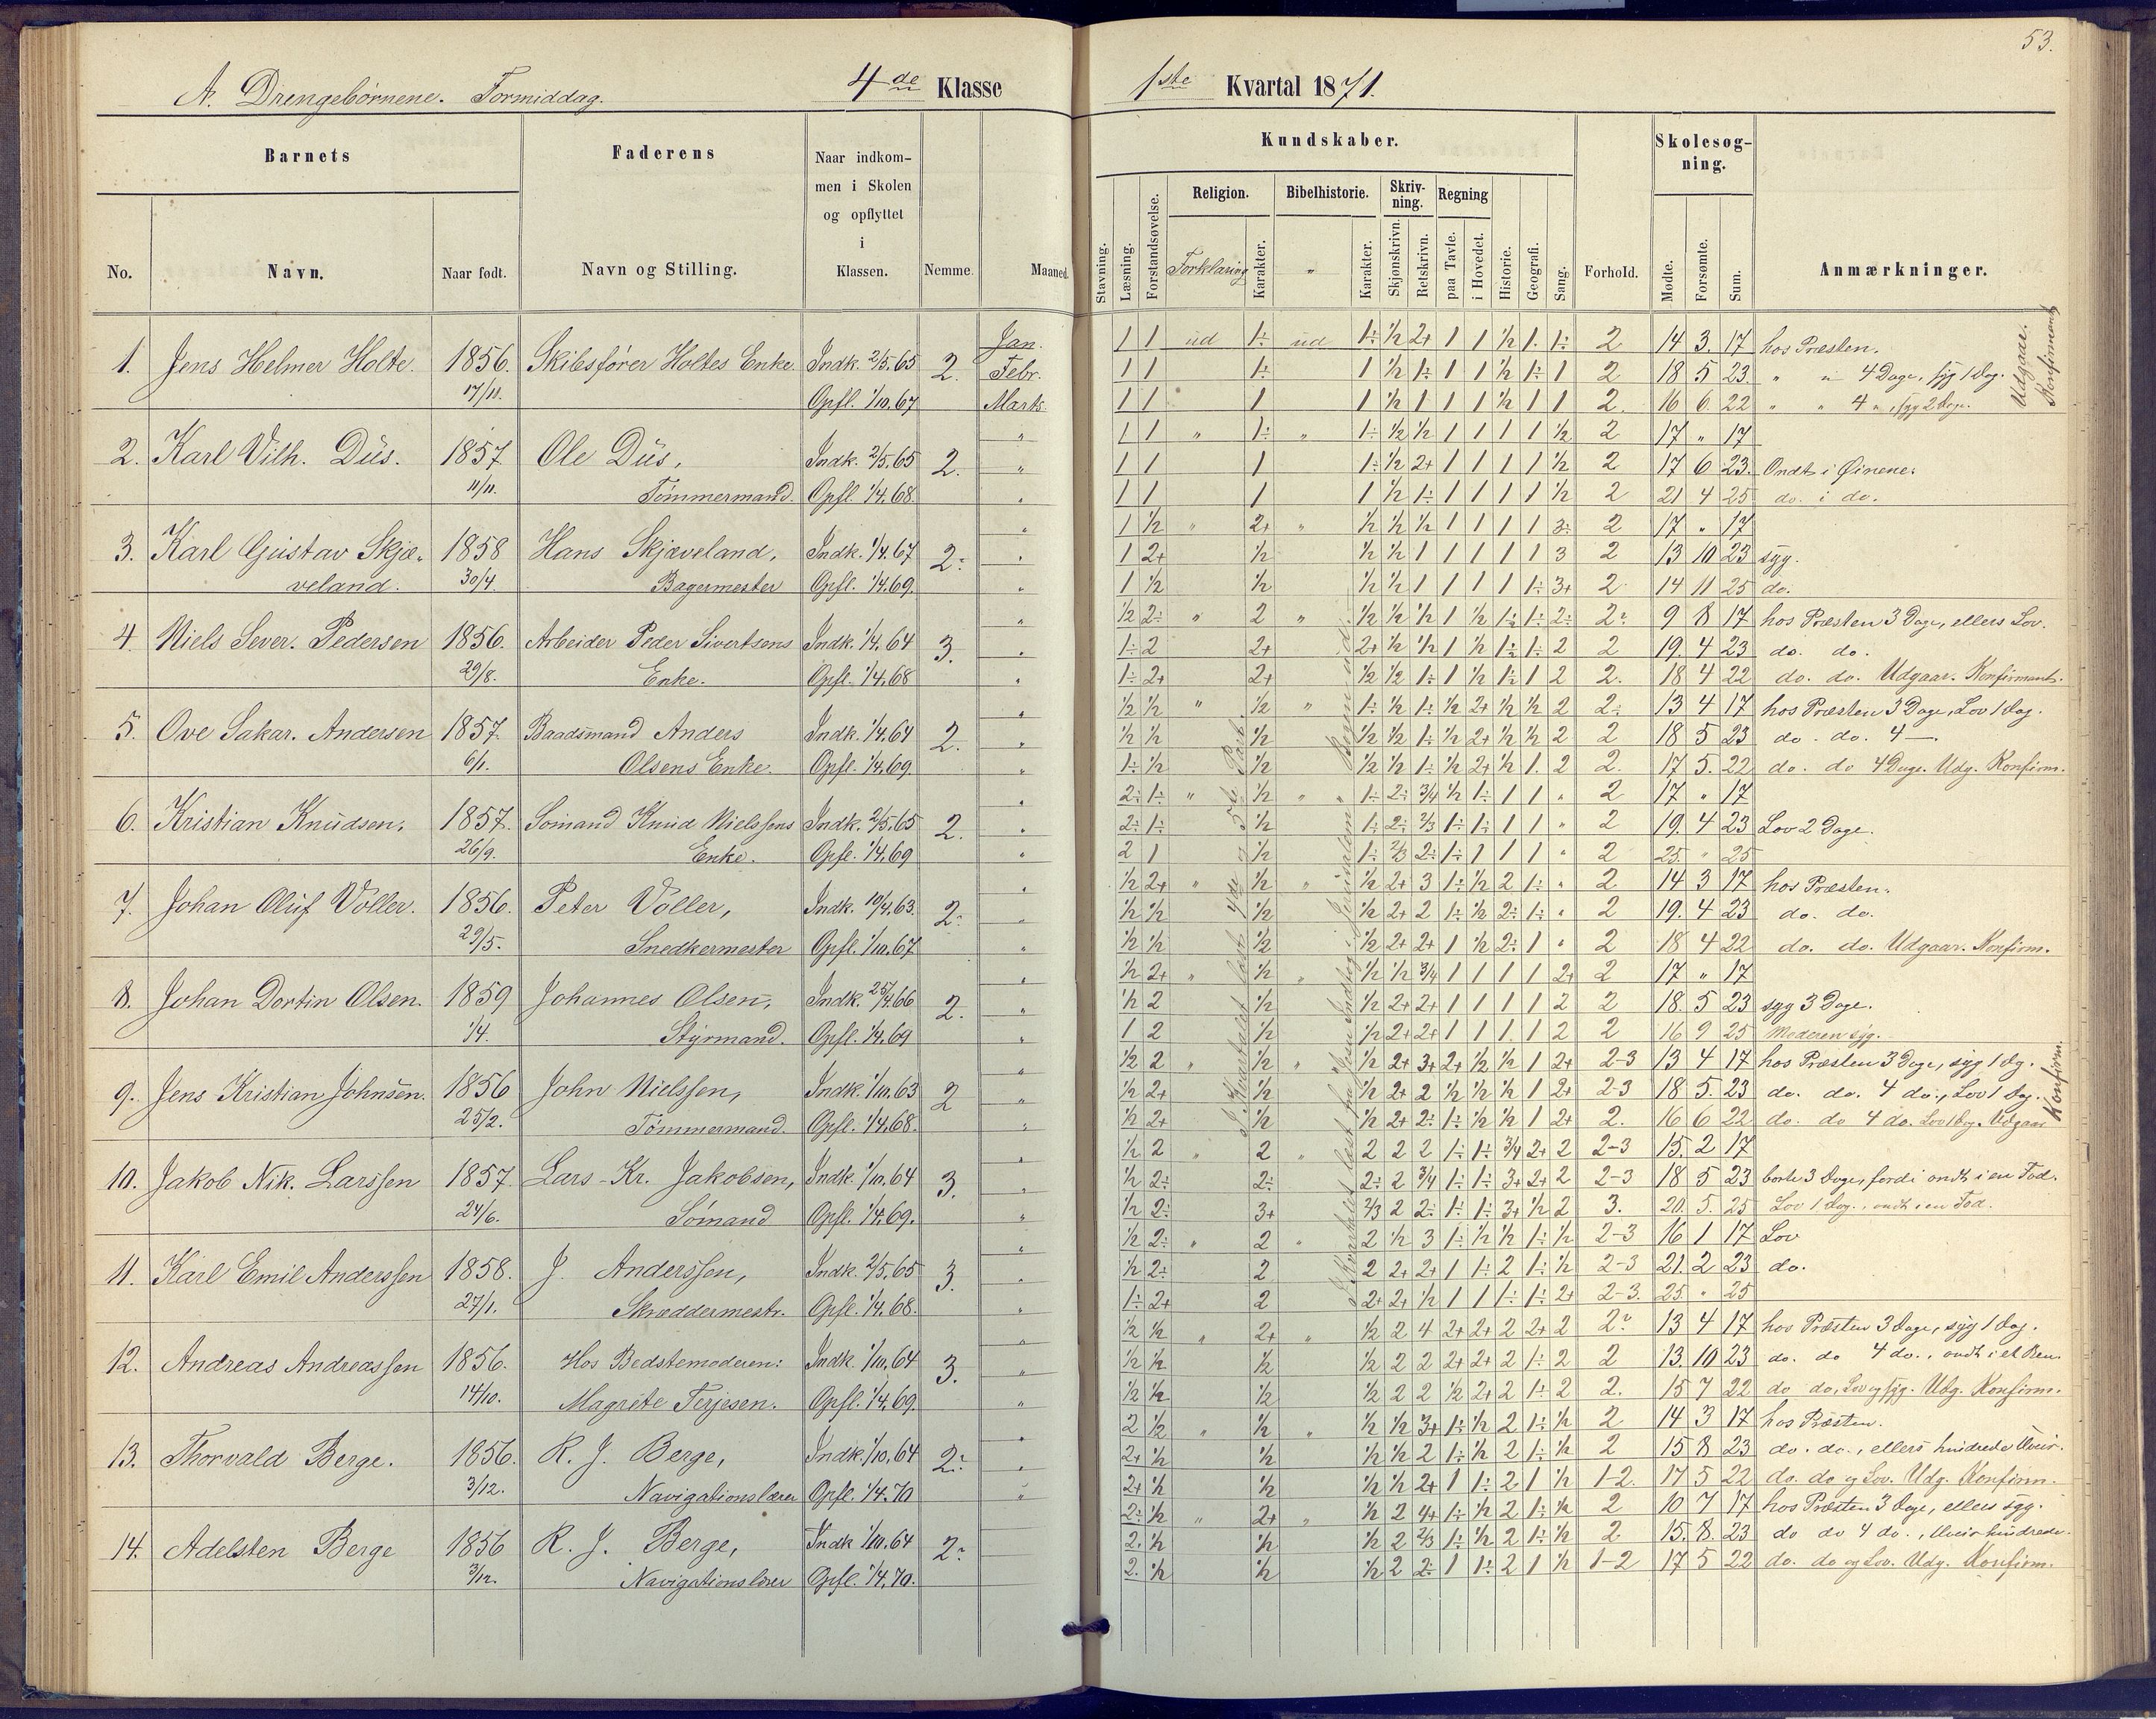 53.
A. Drengebørnene. Formiddag. 4de Klasse 1ste Kvartal 1871.
Barnets Faderens Naar indkommen i Skolen og opflyttet i Klassen. Nemme. Maaned. Kundskaber. Forhold. Skolesøgning. Anmærkninger.
No. Navn. Naar født. Navn og Stilling.
Stavning. Læsning. Forstandsøvelse. Religion. Forklaring Karakter. Bibelhistorie. " Karakter. Skrivning. Skjønskrivn. Retskrivn. Regning paa Tavle. i Hovedet. Historie. Geografi. Sang. Mødte. Forsømte. Sum.
1. Jens Helmer Holte. 1856. 17/11. Skibsfører Holtes Enke. Indk. 2/5.65 Opfl. 1/10.67 2.
Jan. 1 1 ud 1÷ ud 1÷ ½ 2+ 1 1 ½ 1. 1÷ 2 14 3. 17 hos Præsten.
Febr. 1 1 1÷ 1 ½ 1÷ 1 1 ½ 1÷ 1 2 18 5 23. " " 4 Dage, syg 1 Dag.
Marts 1 1 1 1 ½ 1 1 1 ½ 1 1 2. 16 6 22 " " 4 ", syg 2 Dage.
Udgaar. Konfirmants
2. Karl Vilh. Düs. 1857 11/11. Ole Düs, Tømmermand. Indk. 2/5.65 Opfl. 1/4.68. 2.
1 1 " 1÷ " 1÷ ½ ½ 1 1 1 1 ½ 2 17 " 17
1 1 1 1÷ ½ 2+ 1 1 1 1 ½ 2 17 6 23. Ondt i Øinene.
1 1 1 1 ½ 1÷ 1 1 1 1 ½ 2 21 4 25 do. i do.
3. Karl Gustav Skjæveland. 1858 30/4 Hans Skjæveland, Bagermester Indk. 1/4.67 Opfl. 1/4.69. 2÷
1 ½ " 2+ " ½ ½ ½ 1 1 1 1 3÷ 2 17 " 17
1 2+ ½ ½ ½ 1 1 1 1 1 3 2 13 10 23 syg.
1 ½ ½ ½ ½ 1 1 1 1 1÷ 3+ 2 14 11 25 do.
4. Niels Sever. Pedersen 1856. 29/8. Arbeider Peder Sivertsens Enke. Indk. 1/4.64 Opfl. 1/4.68 3.
½ 2÷ " 2 " ½ ½ ½ 1 ½ 1÷ 1÷ 2÷ 2÷ 9 8 17 hos Præsten 3 Dage, ellers Lov.
1÷ 2 2+ 2+ ½ ½ 1 ½ 1÷ 1÷ 2 2 19. 4 23 do. do.
1÷ 2+ 2+ ½ ½ 1÷ 1 ½ 1÷ 1 2 2. 18 4 22 do. do. Udgaar. Konfirmants.
5. Ove Sakar. Andersen 1857. 6/1. Baadsmand Anders Olsens Enke. Indk. 1/4.64 Opfl. 1/4.69. 2.
½ ½ " ½ " 1÷ ½ 1÷ ½ 2+ ½ ½ 2 2÷ 13 4 17 hos Præsten 3 Dage, Lov 1 Dag.
½ ½ ½ ½ ½ 1÷ ½ 2+ ½ ½ 2 2 18 5 23 do. do. 4 —
1÷ ½ ½ ½ ½ 1÷ ½ 2+ ½ 1. 2 2. 17 5. 22 do. do 4 Dage. Udg. Konfirm.
6. Kristian Knudsen. 1857. 26/9. Sømand Knud Nielssøns Enke. Indk. 2/5.65 Opfl. 1/4.69 2.
2÷ 1÷ " ½ " 1÷ 2÷ ¾ ½ 1÷ 1 1 " 2 17 " 17
2÷ 1÷ ½ 1÷ 2÷ 2/3 1÷ 1÷ 1 1 " 2 19. 4 23 Lov 2 Dage.
2 1 ½ 1÷ 2/3 2÷ 1÷ 1 1 1 " 2 25. " 25
7. Johan Oluf Voller. 1856. 29/5. Peter Voller, Snedkermester Indk. 10/4.63. Opfl. 1/10.67 2÷
½ 2+ " ½ " ½ 2+ 3 1÷ ½ 2 1÷ " 2 14 3 17 hos Præsten.
½ ½ ½ ½ 2+ 2 1÷ ½ 2÷ 1÷ " 2 19. 4 23 do. do.
½ ½ ½ ½ 2+ 2+ 1 ½ 2÷ 1 " 2 18 4 22 do. do. Udgaar. Konfirm.
8. Johan Dortin Olsen. 1859 1/4. Johannes Olsen, Styrmand. Indk. 25/4.66 Opfl. 1/4.69 2.
½ 2+ " ½ " ½ ½ ¾ 1 1 1 1 2+ 2 17 " 17
½ 2 ½ ½ 2+ 2+ 1 1 1 1 2 2 18. 5 23 syg 3 Dage.
1 2 ½ ½ 2+ 2+ 1 1 1. 1 2 2 16 9 25 Moderen syg.
9. Jens Kristian Johnsen. 1856 25/2. John Nielssen, Tømmermand. Indk. 1/10.63 Opfl. 1/4.68. 2
½ 2 " ½ " ½ 2+ 3+ 2+ ½ ½ 1 2+ 2-3 13 4 17 hos Præsten 3 Dage, syg 1 Dg.
½ 2+ ½ ½ 2+ 2 ½ ½ ½ 1 2+ 2-3 18 5. 23 do. do. 4 do., Lov 1 Dag.
½ 2+ ½ ½ 2+ 2÷ 1÷ ½ ½ 1 2+ 2. 16 6 22 do. do 4 do. Lov 1 Dag. Udgaar Konfirm.
10. Jakob Nik. Larssen 1857 24/6. Lars Kr. Jakobsen, Sømand Indk. 1/10.64 Opfl. 1/4.69. 3.
½ 2 " 2 " 2 2 2 1÷ 1÷ ¾ 2+ 2 2-3 15. 2 17
½ 2÷ 2÷ 2÷ 2 ¾ 1÷ 1÷ 3+ 2+ 2 2-3 18 5 23 borte 3 Dage, fordi ondt i en Fod.
½ 2÷ 3+ 2/3 2 2÷ 1÷ 1÷ 3+ ½ 2 3. 20. 5. 25 Lov 1 Dag., ondt i en Fod.
11. Karl Emil Anderssen 1858. 27/1. J. Anderssen, Skræddermestr. Indk. 2/5.65 Opfl. 1/4.68. 3.
½ 2÷ " 2 " 2 ½ 3 1÷ ½ ½ 1÷ ½ 2-3 16 1 17 Lov
½ 2÷ 2 2 2+ 2+ 1 1÷ 2 1÷ ½ 2-3 21. 2 23 do.
1÷ 2+ 2 2+ 2+ ½ 1 1 1÷ 1÷ 2+ 2-3. 25. " 25
12. Andreas Andreassen 1856. 14/10. Hos Bedstemoderen: Magrete Terjesen. Indk. 1/10.64 Opfl. 1/4.69. 3.
½ ½ " 2+ " ½ 2 4 2+ 2+ 2 2+ 2 2÷ 13 4 17 hos Præsten 3 Dage, syg 1 Dag.
½ ½ ½ ½ 2 2 2+ 2+ 2 1÷ 2 2 13. 10 23 do. do 4 do., ondt i et Ben.
½ ½ ½ ½ 2 2 ½ 2+ 2 1÷ 2 2. 15 7 22 do do, Lov og syg. Udg. Konfirm.
13. Thorvald Berge. 1856. 3/12. R. J. Berge, Navigationslærer Indk. 1/10.64 Opfl. 1/4.70 2÷
2 ½ " ½ " ½ ½ 3+ 1÷ ½ 2 1÷ ½ 2 14 3 17 hos Præsten.
2+ ½ ½ ½ ½ 2 1÷ ½ 2 1÷ ½ 2 15 8 23 do. do., ellers hindrede Uveir.
2+ ½ ½ ½ ½ 2+ 1 1÷ 2 1 ½ 1-2. 17 5 22 do. do og Lov. Udg. Konfirm.
14. Adelsten Berge 1856 3/12. R. J. Berge, Navigationslærer Indk. 1/10.64 Opfl. 1/4.70. 2÷
2÷ ½ " 2+ " ½ 2 4+ 1÷ ½ 2 1÷ ½ 2 10 7 17 hos Præsten 3 Dage, ellers syg.
2. ½ ½ ½ 2 2/3 1÷ ½ 2 1÷ ½ 2 15. 8. 23 do do 4 do., Uveir hindrede.
2. ½ ½ ½ 2 2÷ 1 1÷ 2 1 ½ 1-2 17 5 22 do. do og Lov. Udg. Konfirm.